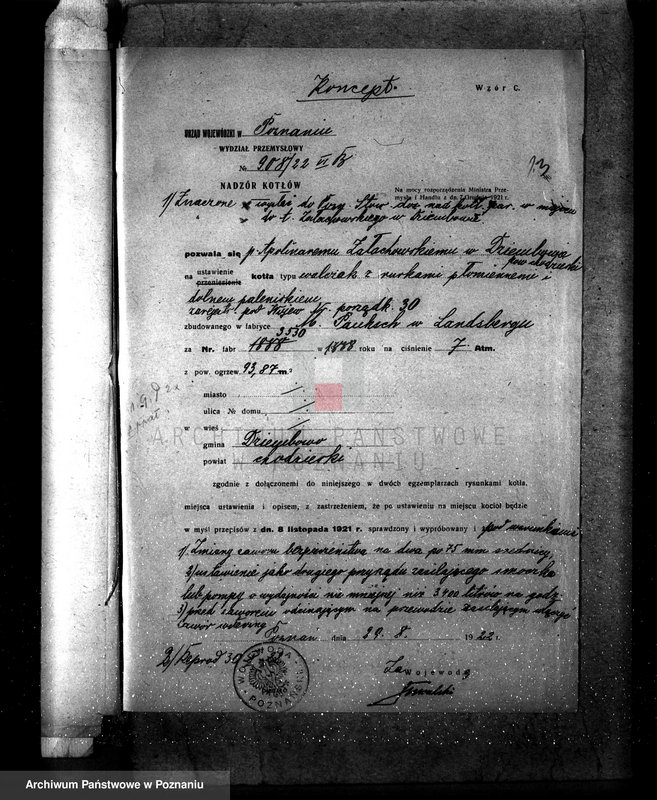 Koncept.
Wzór C.
URZĄD WOJEWÓDZKI w Poznaniu
WYDZIAŁ PRZEMYSŁOWY
№ 908/22 VI B
13
NADZÓR KOTŁÓW
Na mocy rozporządzenia Ministra Prze-
mysłu i Handlu z dn. 1921 r.
1) Znaczone wyśłać do Stow. doz. nad kotł. par. w miejscu
do t. Załachowskiego w Dziembowie
pozwala się p. Apolinaremu Załachowskiemu w Dziembowie
pow chodzieski
na ustawienie przeniesienie kotła typu walczak z rurkami płomiennemi i
dolnem paleniskiem
zarejestr. pod Nr. porządk. 30
zbudowanego w fabryce Pauksch w Landsbergu
3530
za Nr. fabr 1888 w 1888 roku na ciśnienie 7 Atm.
z pow. ogrzew 93,87 m²
miasto
ulica № domu
w wieś
gmina Dziembowo
powiat chodzieski
ARCHIWUM PAŃSTWOWE
W POZNANIU
zgodnie z dołączonemi do niniejszego w dwóch egzemplarzach rysunkami kotła,
miejsca ustawienia i opisem, z zastrzeżeniem, że po ustawieniu na miejscu kocioł będzie
w myśl przepisów z dn. 8 listopada 1921 r. sprawdzony i wypróbowany i pod warunkami
1) Zmiany zaworu bezpieczeństwa na dwa po 75 mm średnicy,
2) ustawienie jako drugiego przyrządu zasilającego smoczka
lub pompy o wydajności nie mniejszej niż 3400 litrów na godz.
3) przed zaworem odcinającym na przewodzie zasilającym
zawór
Poznań dnia 29. 8. 1922
2) Reprod 30
WOJEWODA POZNAŃSKI
Za Wojewodę
Archiwum Państwowe w Poznaniu